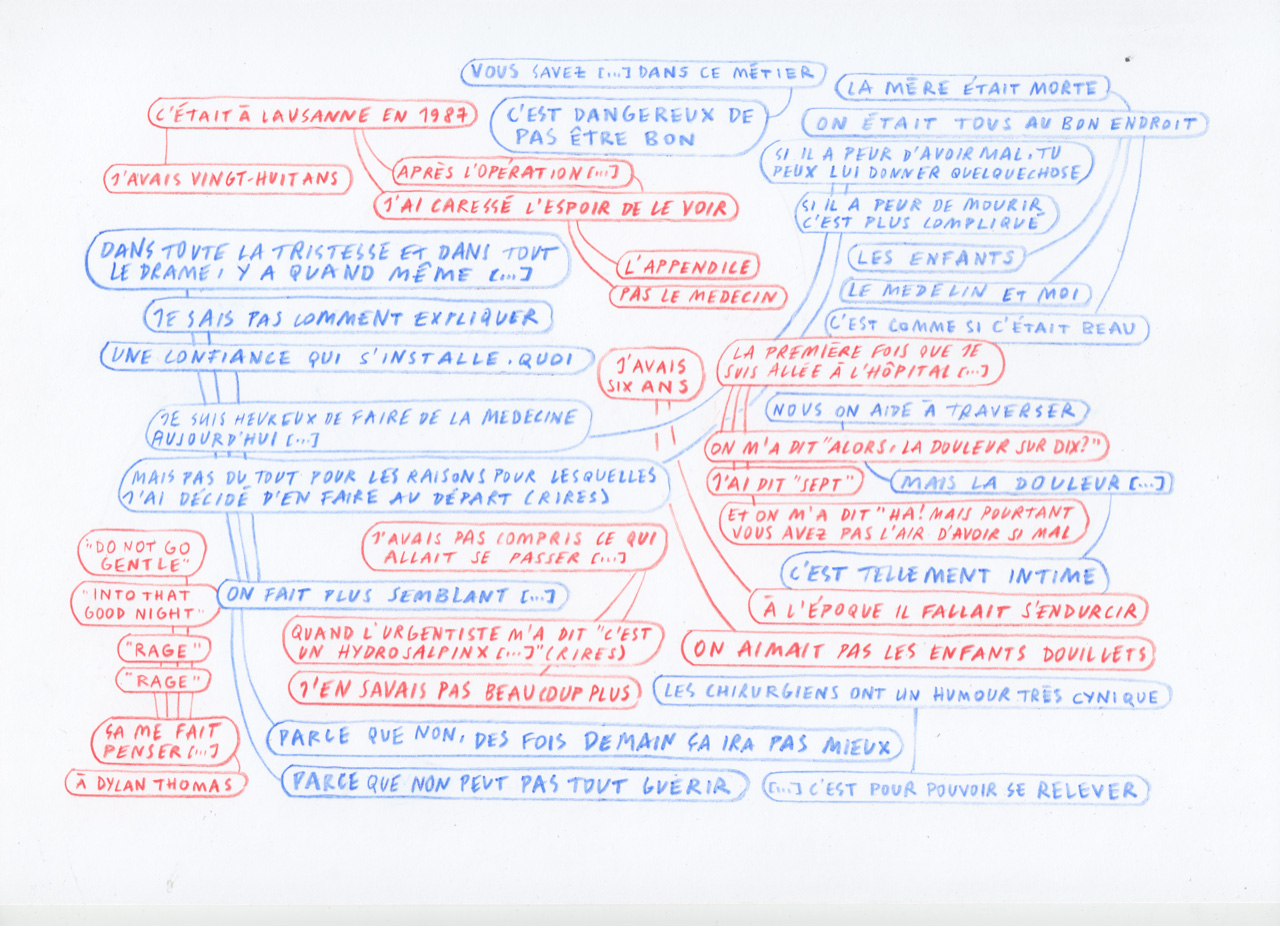 VOUS SAVEZ [...] DANS CE MÉTIER
LA MÈRE ÉTAIT MORTE
C'ÉTAIT À LAUSANNE EN 1987
C'EST DANGEREUX DE
PAS ÊTRE BON
ON ÉTAIT TOUS AU BON ENDROIT
SI IL A PEUR D'AVOIR MAL, TU
PEUX LUI DONNER QUELQUECHOSE
J'AVAIS VINGT-HUIT ANS
APRÈS L'OPÉRATION [...]
J'AI CARESSÉ L'ESPOIR DE LE VOIR
SI IL A PEUR DE MOURIR
C'EST PLUS COMPLIQUÉ
DANS TOUTE LA TRISTESSE ET DANS TOUT
LE DRAME, Y A QUAND MÊME [...]
L'APPENDICE
LES ENFANTS
PAS LE MEDECIN
LE MEDECIN ET MOI
JE SAIS PAS COMMENT EXPLIQUER
C'EST COMME SI C'ÉTAIT BEAU
UNE CONFIANCE QUI S'INSTALLE, QUOI
J'AVAIS
SIX ANS
LA PREMIÈRE FOIS QUE JE
SUIS ALLÉE À L'HÔPITAL [...]
JE SUIS HEUREUX DE FAIRE DE LA MEDECINE
AUJOURD'HUI [...]
NOUS ON AIDE À TRAVERSER
ON M'A DIT "ALORS, LA DOULEUR SUR DIX?"
MAIS PAS DU TOUT POUR LES RAISONS POUR LESQUELLES
J'AI DÉCIDÉ D'EN FAIRE AU DÉPART (RIRES)
J'AI DIT "SEPT"
MAIS LA DOULEUR [...]
ET ON M'A DIT "HA! MAIS POURTANT
VOUS AVEZ PAS L'AIR D'AVOIR SI MAL
"DO NOT GO
GENTLE"
J'AVAIS PAS COMPRIS CE QUI
ALLAIT SE PASSER [...]
C'EST TELLEMENT INTIME
"INTO THAT
GOOD NIGHT"
ON FAIT PLUS SEMBLANT [...]
À L'ÉPOQUE IL FALLAIT S'ENDURCIR
"RAGE"
QUAND L'URGENTISTE M'A DIT "C'EST
UN HYDROSALPINX [...]" (RIRES)
ON AIMAIT PAS LES ENFANTS DOUILLETS
"RAGE"
J'EN SAVAIS PAS BEAUCOUP PLUS
LES CHIRURGIENS ONT UN HUMOUR TRÈS CYNIQUE
ÇA ME FAIT
PENSER [...]
PARCE QUE NON, DES FOIS DEMAIN ÇA IRA PAS MIEUX
À DYLAN THOMAS
PARCE QUE NON PEUT PAS TOUT GUÉRIR
[...] C'EST POUR POUVOIR SE RELEVER